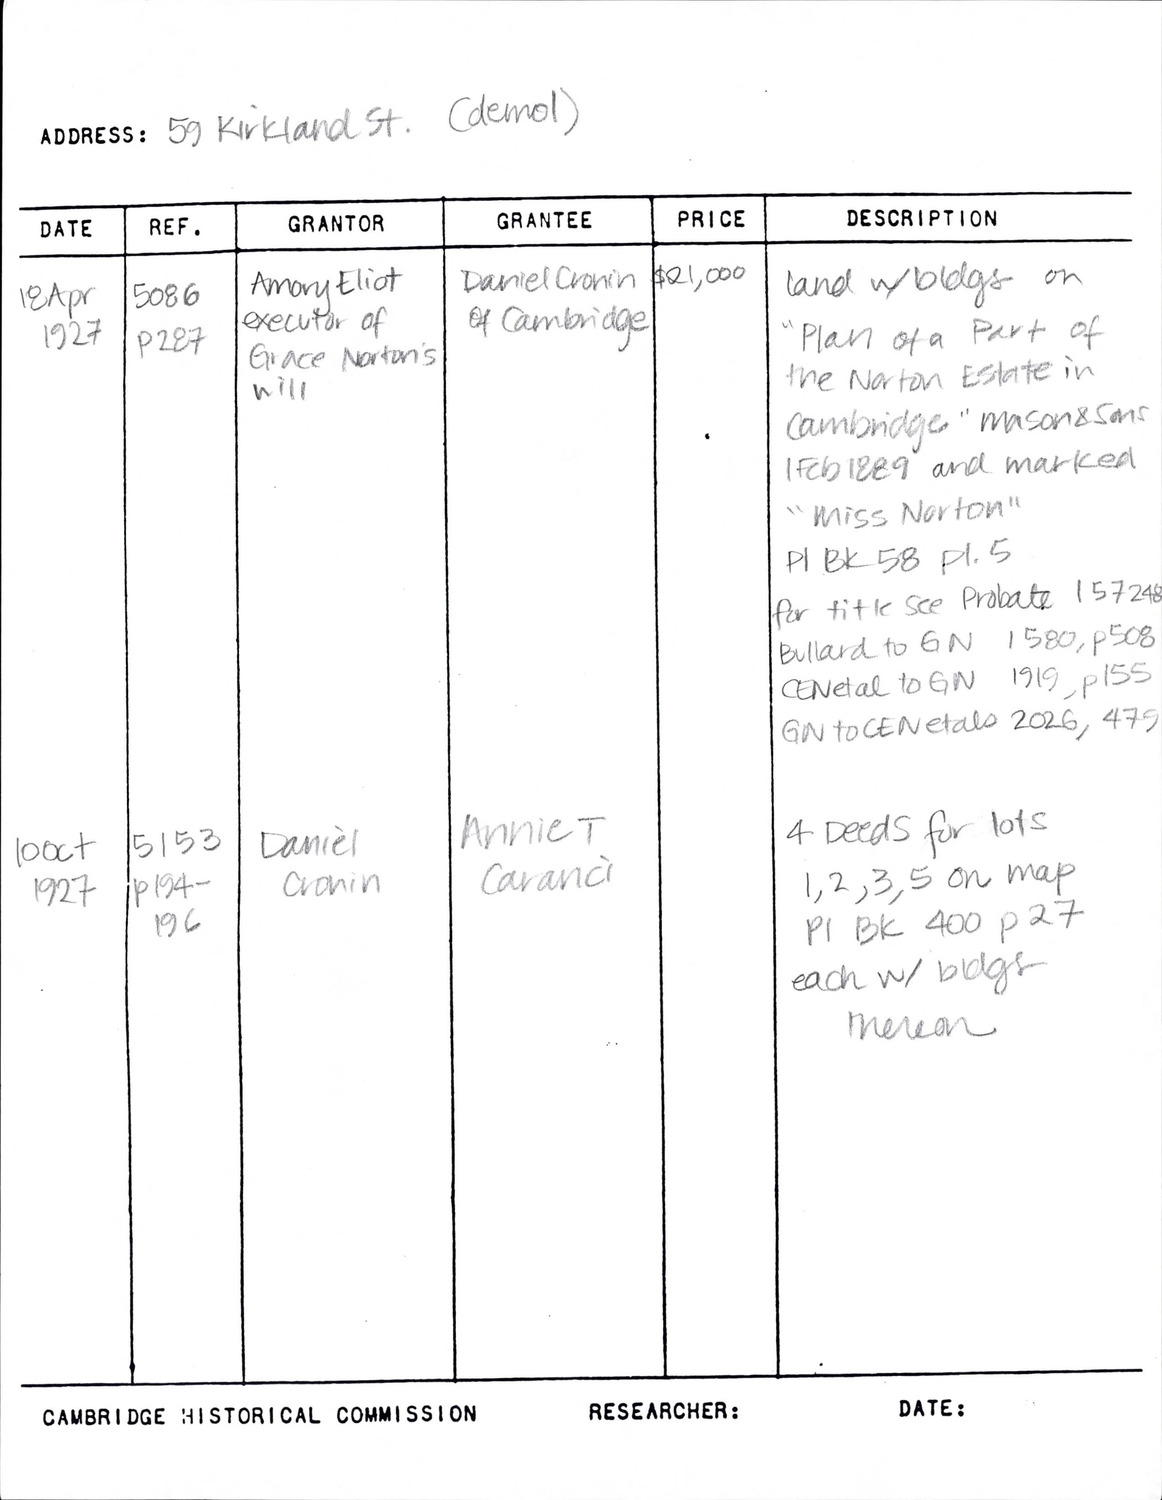 ADDRESS: 59 Kirkland St. (demol)
DATE REF. GRANTOR GRANTEE PRICE DESCRIPTION
18 Apr
1927
5086
p287
Amory Eliot
executor of
Grace Norton's
will
Daniel Cronin
of Cambridge
$21,000
land w/bldgs on
"Plan of a Part of
the Norton Estate in
Cambridge" Mason & Sons
1 Feb 1889 and marked
"Miss Norton"
Pl Bk 58 pl. 5
for title see Probate 157248
Bullard to GN 1580, p508
CEN et al to GN 1919, p155
GN to CEN et als 2026, 475
10 Oct
1927
5153
p194-
196
Daniel
Cronin
Annie T
Caranci
4 Deeds for lots
1, 2, 3, 5 on map
Pl Bk 400 p 27
each w/ bldgs
thereon
CAMBRIDGE HISTORICAL COMMISSION RESEARCHER: DATE: